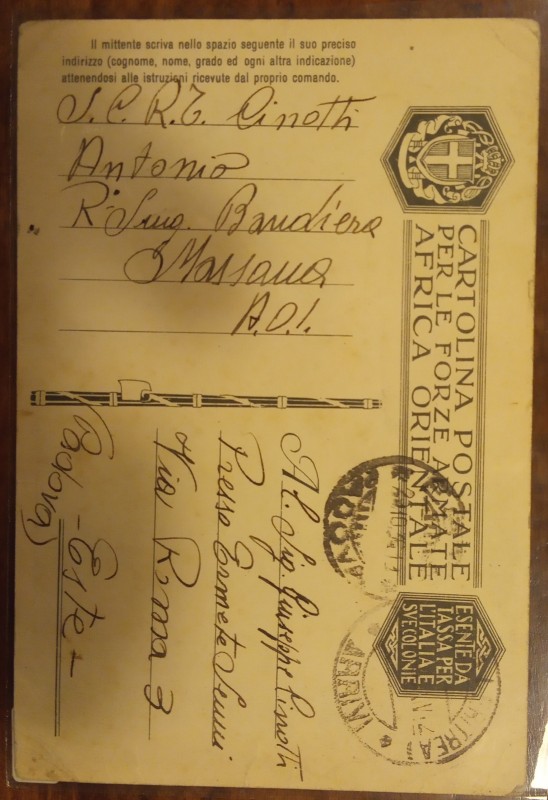 Il mittente scriva nello spazio seguente il suo preciso
indirizzo (cognome, nome, grado ed ogni altra indicazione)
attenendosi alle istruzioni ricevute dal proprio comando.
S.C.R.T. Cinotti
Antonio
R. Bandiera
Massaua
A.O.I.
CARTOLINA POSTALE
PER LE FORZE ARMATE
AFRICA ORIENTALE
ESENTE DA
TASSA PER
L'ITALIA E
SVE COLONIE
Al Sig. Giuseppe Cinotti
Presso Ermete
Via Roma 3
- Este -
(Padova)